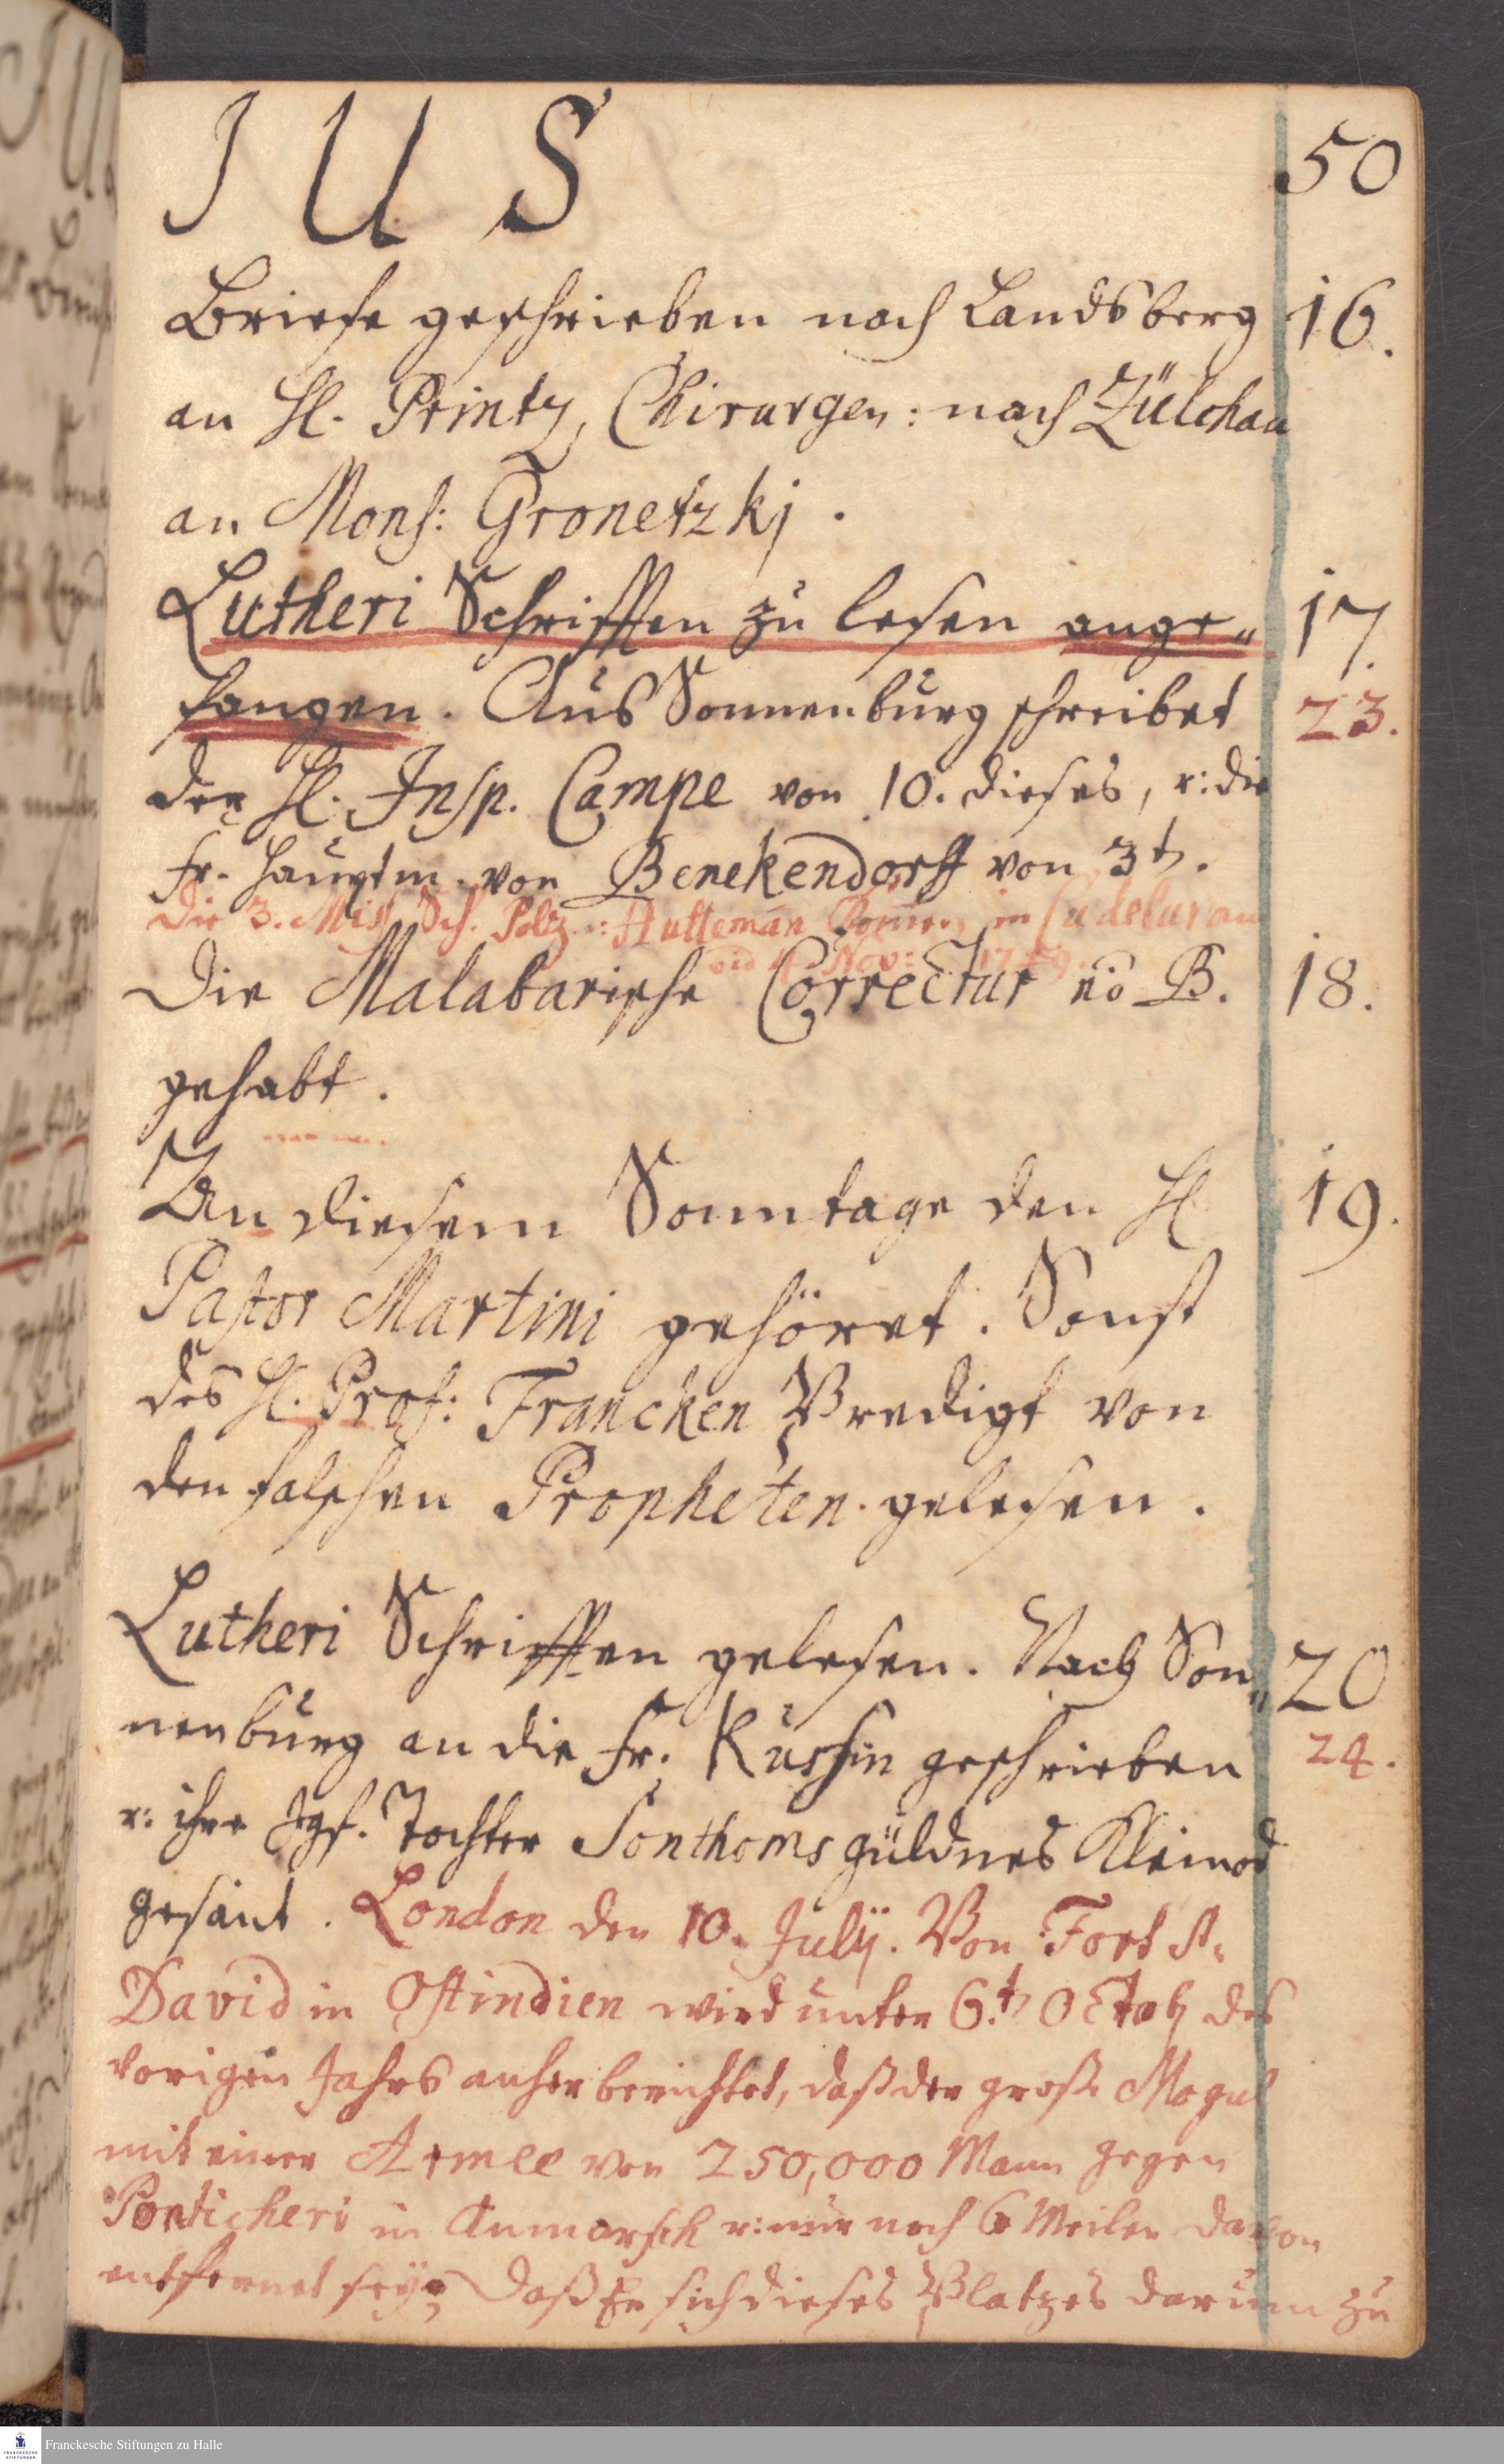 JUS 50
Briefe geschrieben nach Landsberg 16.
an H. Printz, Chirurgen: nach Zülchau
an Mons: Gronetzkj.
Lutheri Schrifften zu lesen ange= 17.
fangen. Aus Sonnenburg schreibet 23.
der H. Insp. Campe von 10. dieses, u: die
Fr. Hauptm. von Benekendorff von 3t.
Die 3. Miss. Sch. Poltz.: Hutteman in Cudelur an
vid Nov: 1749.
Die Malabarische Correctur no B. 18.
gehabt.
An diesem Sonntage den H. 19.
Pastor Martini gehöret. Sonst
des H. Prof: Francken Predigt von
den falschen Propheten gelesen.
Lutheri Schrifften gelesen. Nach Son= 20
nenburg an die Fr. Küssin geschrieben 24.
u: ihre Jgf. Tochter Sonthoms güldnes Kleinod
gesant. London den 10. Julij. Von Fort St.
David in Ostindien wird unter 6.t Octob des
vorigen Jahrs anher berichtet, daß der große Mogul
mit einer Armee von 250,000 Mann gegen
Ponticheri in Anmarsch u: nur noch 6 Meilen davon
entfernet sey; Daß Er sich dieses Platzes darum zu
Franckesche Stiftungen zu Halle